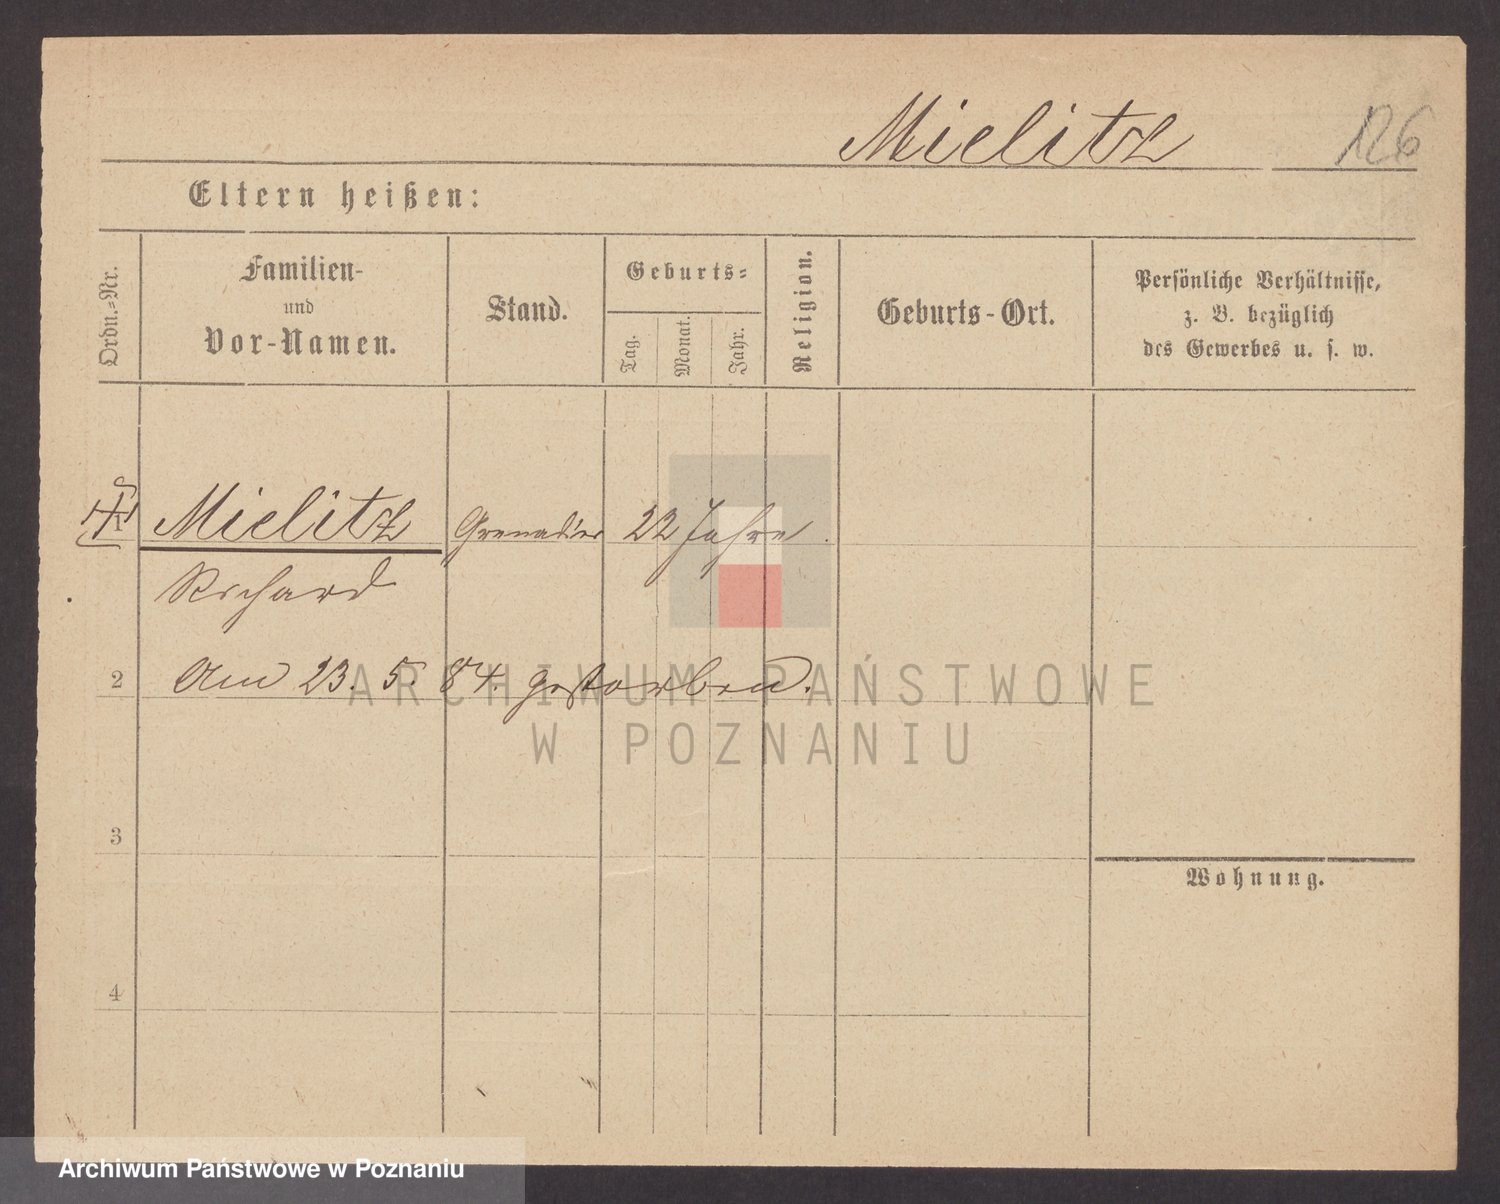 Mielitz 126
Eltern heißen:
Ordn.=Nr.
Familien-
und
Vor-Namen.
Stand.
Geburts=
Tag.
Monat.
Jahr.
Religion.
Geburts-Ort.
Persönliche Verhältnisse,
z. B. bezüglich
des Gewerbes u. s. w.
1 Mielitz Grenadier 22 Jahre.
Richard
2 Am 23. 5. 84. gestorben.
ARCHIWUM PAŃSTWOWE
W POZNANIU
3
Wohnung.
4
Archiwum Państwowe w Poznaniu